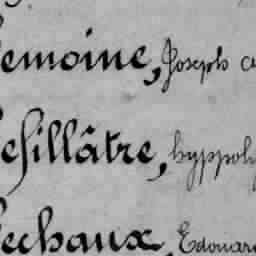 emoine, Joseph
esillâtre, hyppoly
echaux, Edouar